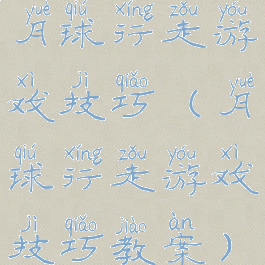 yuè qiú xíng zǒu yóu
月球行走游
xì jì qiǎo yuè
戏技巧(月
qiú xíng zǒu yóu xì
球行走游戏
jì qiǎo jiào àn
技巧教案)